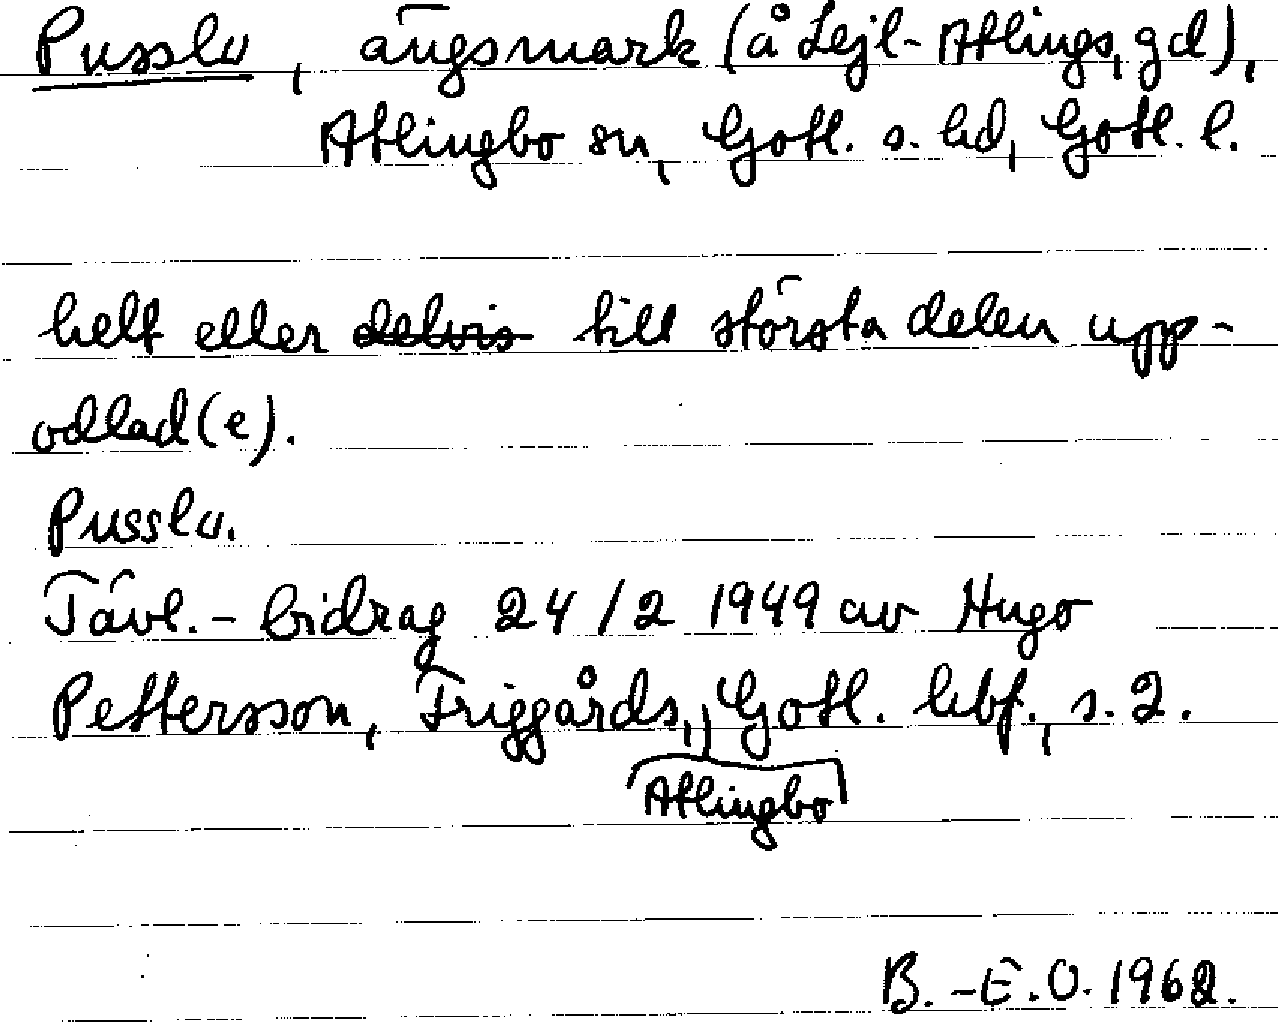 Pussla, ängsmark (å Lejl-Atlings, gd),
Atlingbo sn, Gotl. s. hd, Gotl. l.
helt eller delvis till största delen upp-
odlad(e).
Pussla.
Tävl.-bidrag 24/2 1949 av Hugo
Pettersson, Friggårds, Gotl. hbf., s. 2.
Atlingbo
B.-E.O. 1962.